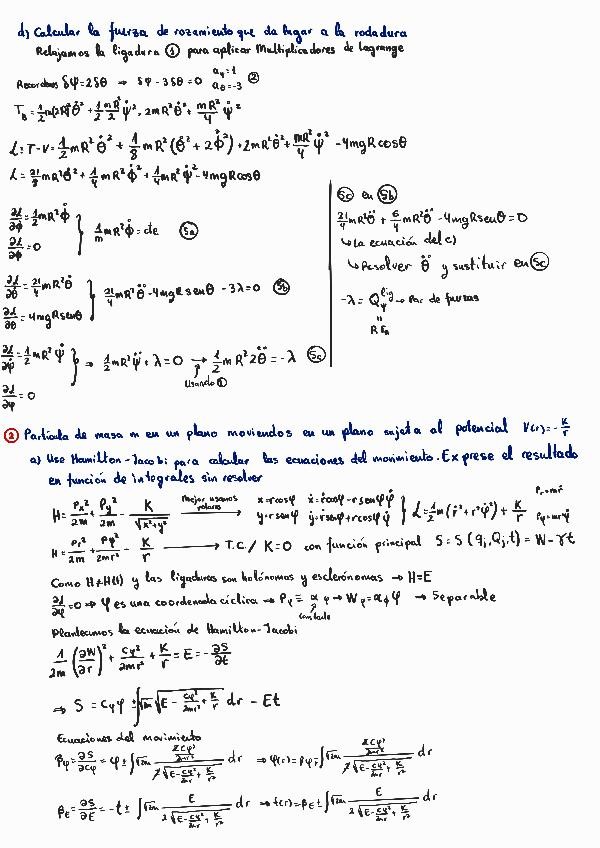 d) Calcular la fuerza de rozamiento que da lugar a la rodadura
Relajamos la ligadura ① para aplicar Multiplicadores de Lagrange
Recordemos δφ=2δθ → δφ - 3δθ = 0 a_ψ=1 a_θ=-3 ②
L = T-V = 1/2 mR² θ̇² + 1/8 mR² (θ̇² + 2Φ̇²) + 2mR²θ̇² + mR²/4 ψ̇² - 4mgRcosθ
L = 21/8 mR²θ̇² + 1/4 mR² Φ̇² + 1/4 mR² ψ̇² - 4mgRcosθ
∂L/∂Φ̇ = 1/2 mR² Φ̇
∂L/∂Φ = 0
mR² Φ̇ = cte 5a
∂L/∂θ̇ = 21/4 mR² θ̇
∂L/∂θ = 4mgRsenθ
21/4 mR² θ̈ - 4mgRsenθ - 3λ = 0 5b
∂L/∂ψ̇ = 1/2 mR² ψ̇
∂L/∂φ = 0
⇒ 1/2 mR² ψ̈ + λ = 0 → 1/2 mR² 2θ̈ = -λ 5c
Usando ①
5c en 5b
21/4 mR² θ̈ + 6/4 mR² θ̈ - 4mgRsenθ = 0
↳ La ecuación del c)
↳ Resolver θ̈ y sustituir en 5c
-λ = Q_ψ^lig → Par de fuerzas
② Partícula de masa m en un plano moviendos en un plano sujeta al potencial V(r) = -K/r
a) Use Hamilton-Jacobi para calcular las ecuaciones del movimiento. Exprese el resultado
en función de integrales sin resolver
H = Px²/2m + Py²/2m - K/√(x²+y²) Mejor usamos polares → x = rcosφ ẋ = ṙcosφ - rsenφφ̇ y = rsenφ ẏ = ṙsenφ + rcosφ φ̇ } L = 1/2 m (ṙ² + r²φ̇²) + K/r
H = Pr²/2m + Pφ²/2mr² - K/r → T.C./ K=0 con función principal S = S(q_j, Q_j, t) = W - γt
Como H≠H(t) y las ligaduras son holónomas y esclerónomas → H=E
∂L/∂φ = 0 ⇒ φ es una coordenada cíclica → Pφ = αφ → Wφ = αφ φ → Separable
constante
Planteamos la ecuación de Hamilton-Jacobi
1/2m (∂W/∂r)² + Cφ²/2mr² + K/r = E = -∂S/∂t
⇒ S = Cφ φ ± ∫√2m √(E - Cφ²/2mr² + K/r) dr - Et
Ecuaciones del movimiento
βφ = ∂S/∂Cφ = φ ± ∫√2m (2Cφ/2mr²)/(2√(E - Cφ²/2mr² + K/r²)) dr ⇒ φ(r) = βφ ∓ ∫√2m (2Cφ/2mr²)/(2√(E - Cφ²/2mr² + K/r²)) dr
βE = ∂S/∂E = -t ± ∫√2m E/(2√(E - Cφ²/2mr + K/r²)) dr ⇒ t(r) = βE ± ∫√2m E/(2√(E - Cφ²/2mr + K/r²)) dr